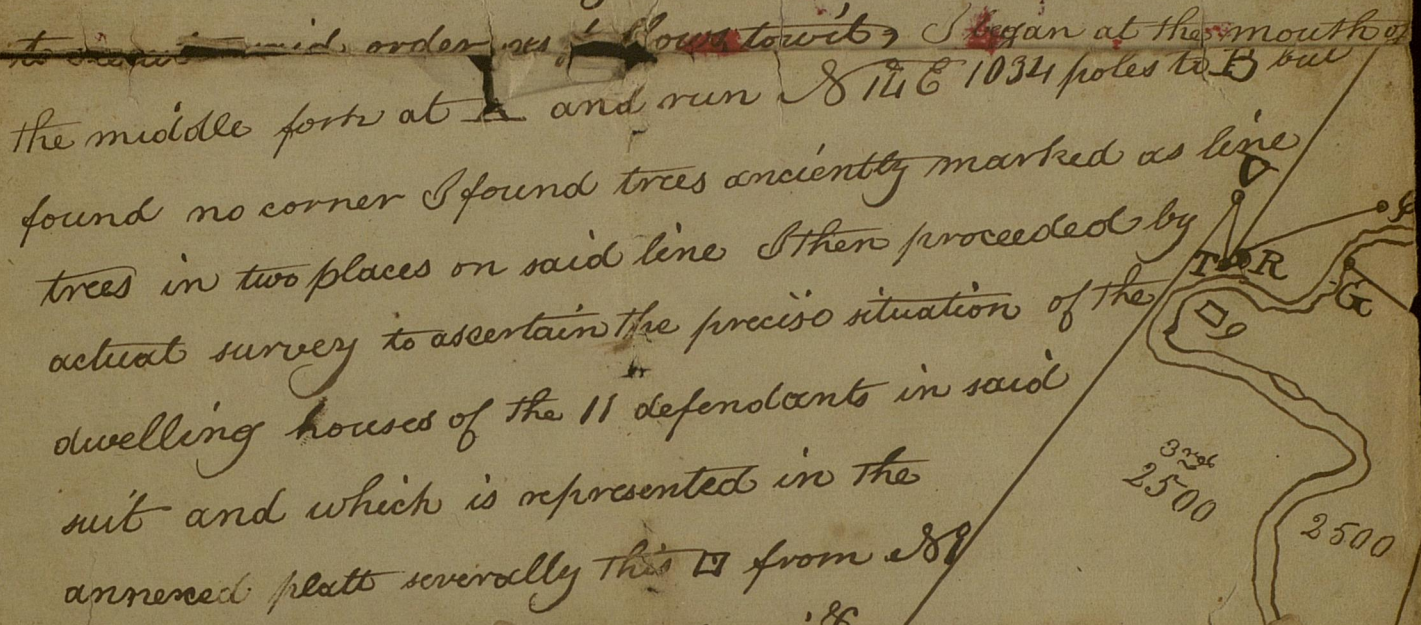 to said order as follows towit, I began at the mouth of
the middle fork at A and run N 14 E 1034 poles to B but
found no corner I found trees anciently marked as line
trees in two places on said line I then proceeded by
actual survey to ascertain the precise situation of the
dwelling houses of the 11 defendants in said
suit and which is represented in the
annexed platt severally this □ from No
T R
G
9
3rd
2500
2500